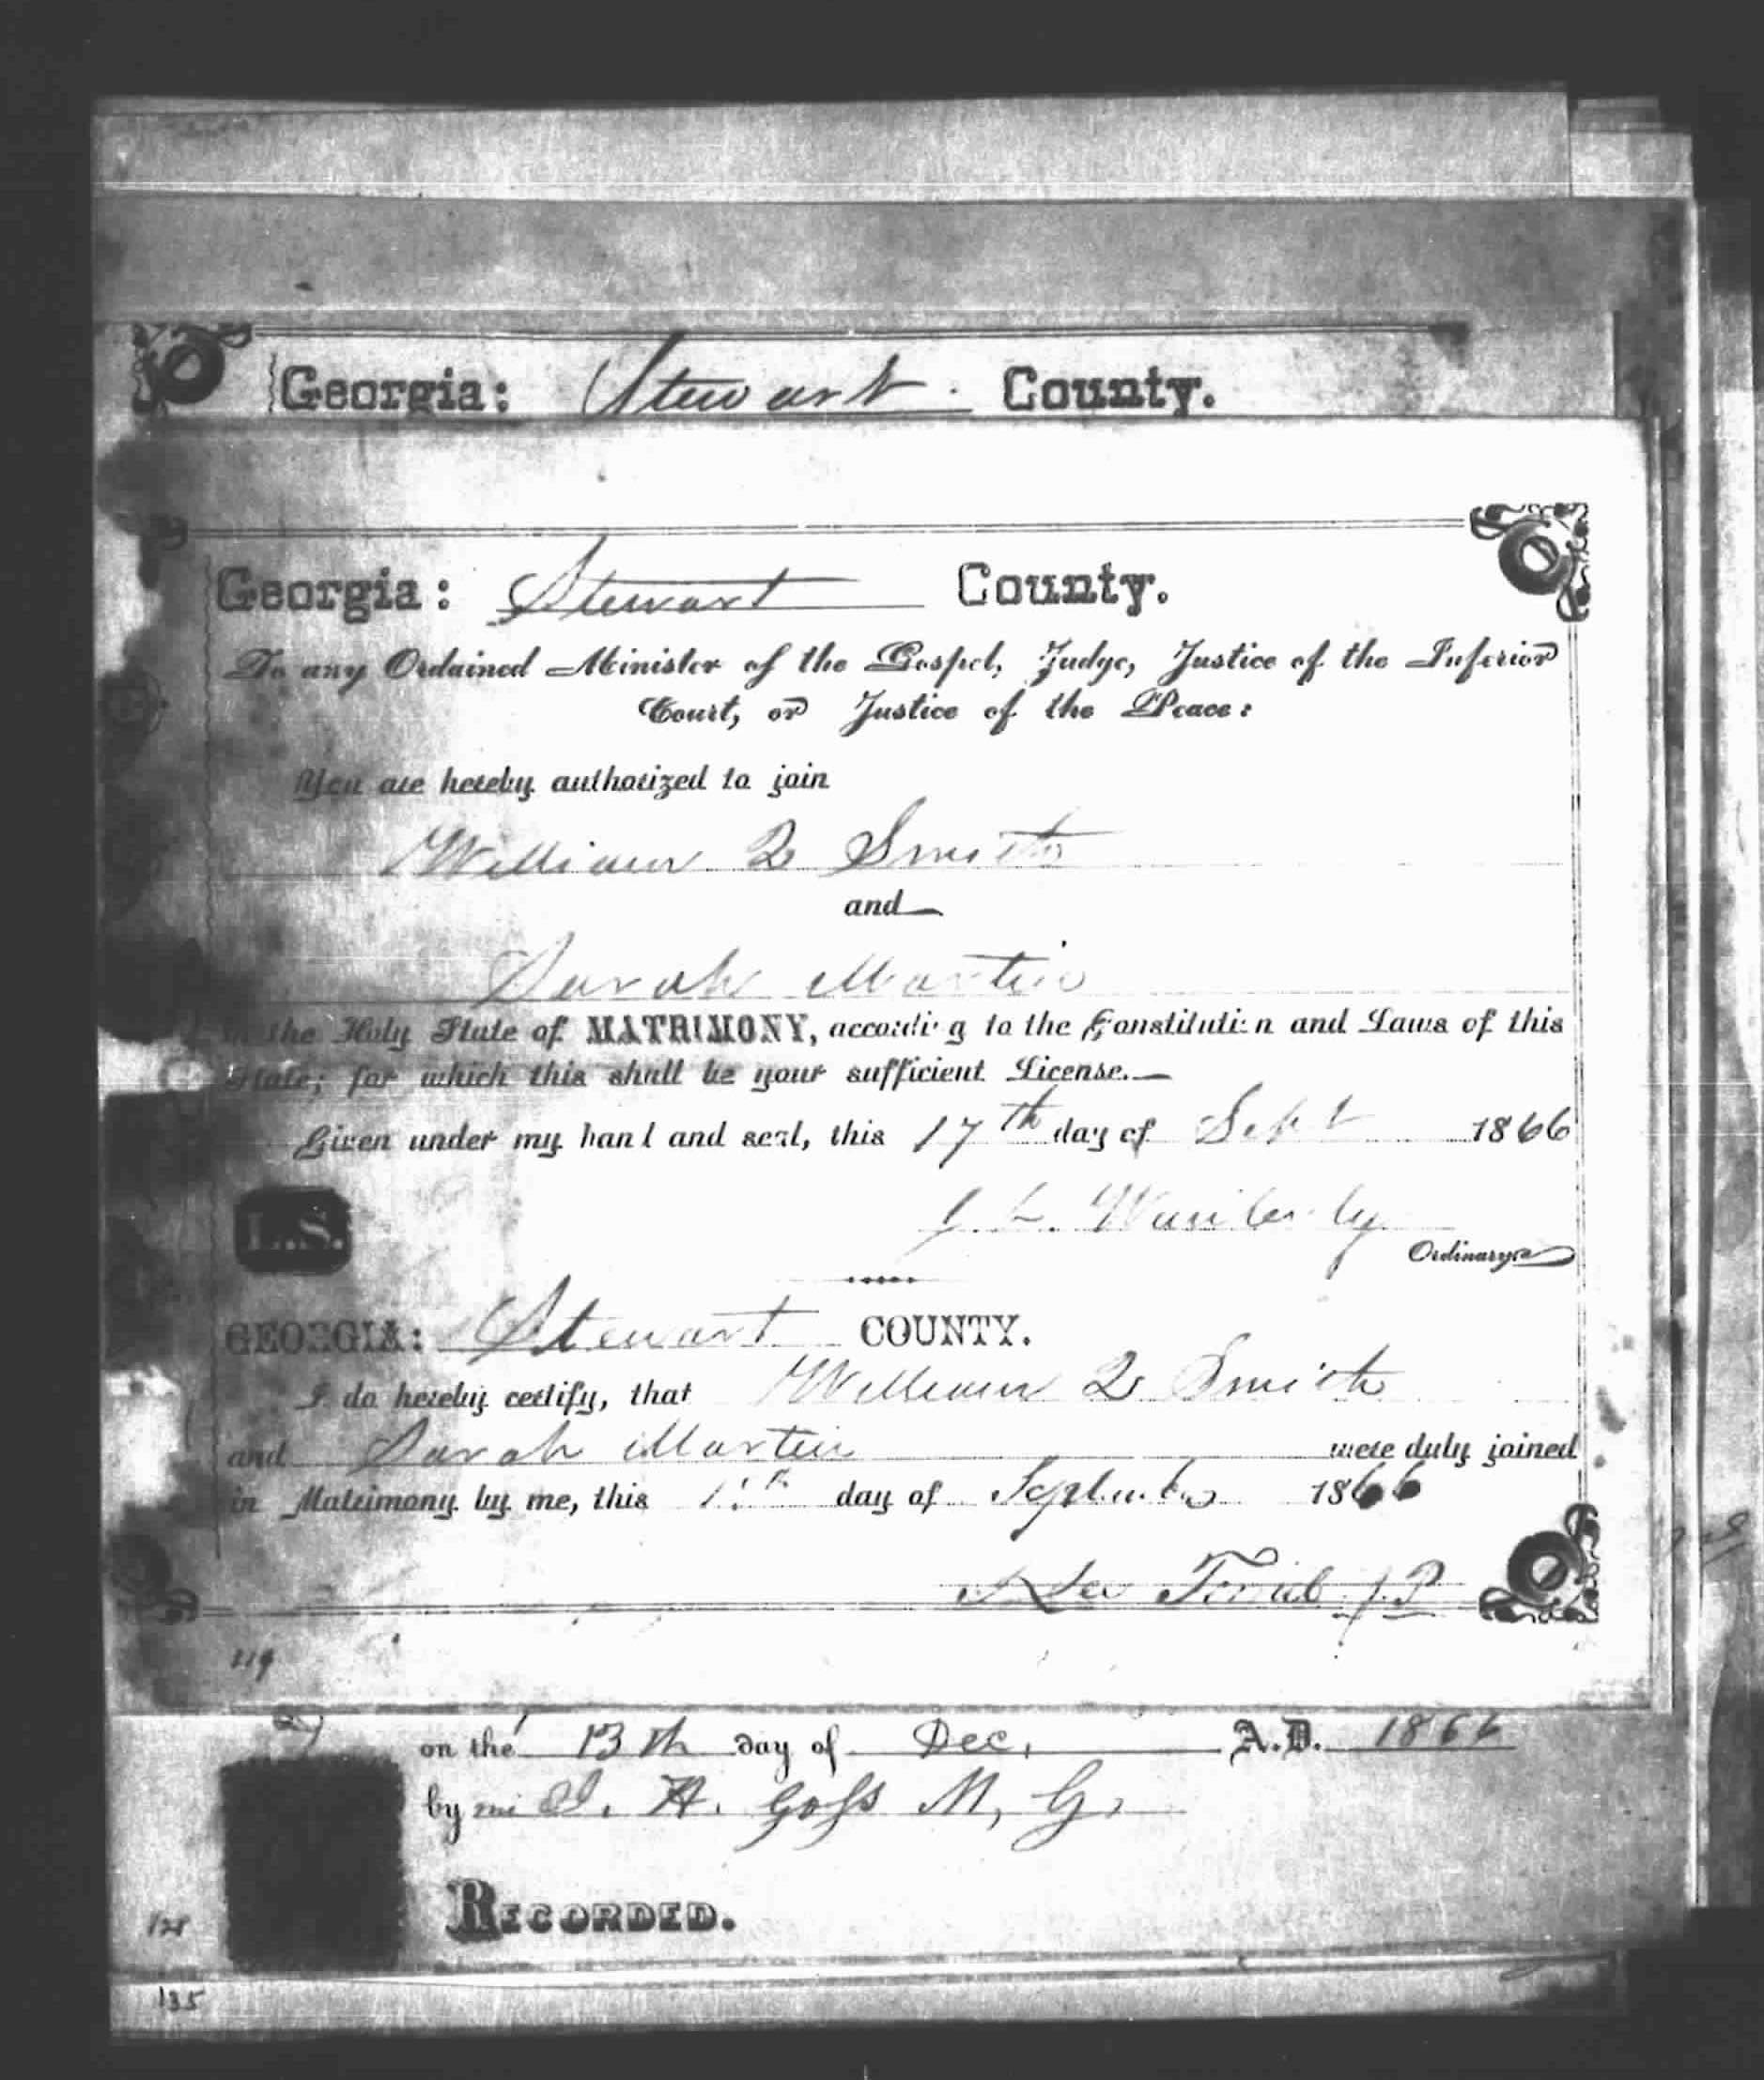 Georgia: Stewart County.
Georgia: Stewart County.
To any Ordained Minister of the Gospel, Judge, Justice of the Inferior
Court, or Justice of the Peace:
You are hereby authorized to join
William Q Smith
and
Sarah Martin
in the Holy State of MATRIMONY, according to the Constitution and Laws of this
State; for which this shall be your sufficient License.
Given under my hand and seal, this 17th day of Sept 1866
J. L. Wimberly
Ordinary.
L.S.
GEORGIA: Stewart COUNTY.
I do hereby certify, that William Q Smith
and Sarah Martin were duly joined
in Matrimony by me, this day of September 1866
J.P.
119
on the 13th day of Dec, A.D. 1866
by me J. H. Goss M, G,
RECORDED.
128
135